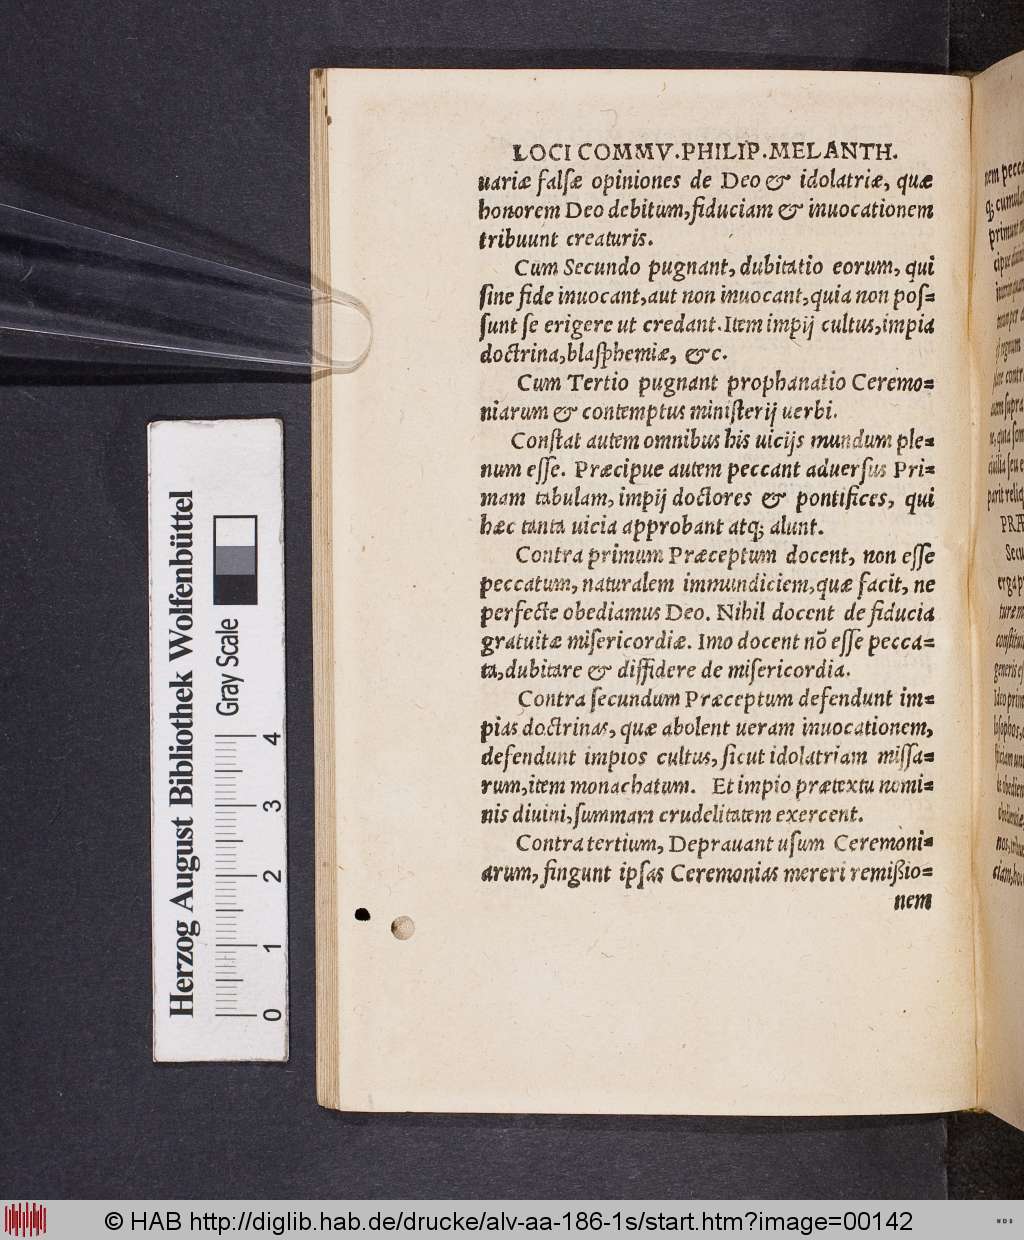 LOCI COMMV.PHILIP.MELANTH.
uariæ falsæ opiniones de Deo & idolatriæ, quæ
honorem Deo debitum,fiduciam & inuocationem
tribuunt creaturis.
Cum Secundo pugnant, dubitatio eorum, qui
sine fide inuocant,aut non inuocant,quia non pos=
sunt se erigere ut credant.Item impij cultus,impia
doctrina,blasphemiæ, &c.
Cum Tertio pugnant prophanatio Ceremo=
niarum & contemptus ministerij uerbi.
Constat autem omnibus his uicijs mundum ple=
num esse. Præcipue autem peccant aduersus Pri=
mam tabulam, impij doctores & pontifices, qui
hæc tanta uicia approbant atq; alunt.
Contra primum Præceptum docent, non esse
peccatum, naturalem immundiciem,quæ facit, ne
perfecte obediamus Deo. Nihil docent de fiducia
gratuitæ misericordiæ. Imo docent nõ esse pecca=
ta,dubitare & diffidere de misericordia.
Contra secundum Præceptum defendunt im=
pias doctrinas, quæ abolent ueram inuocationem,
defendunt impios cultus, sicut idolatriam missa=
rum,item monachatum. Et impio prætextu nomi=
nis diuini,summam crudelitatem exercent.
Contra tertium, Deprauant usum Ceremoni=
arum, fingunt ipsas Ceremonias mereri remißio=
nem
nem pecca
primum
PRÆ
Secu
erga p
Herzog August Bibliothek Wolfenbüttel
Gray Scale
0 1 2 3 4
© HAB http://diglib.hab.de/drucke/alv-aa-186-1s/start.htm?image=00142